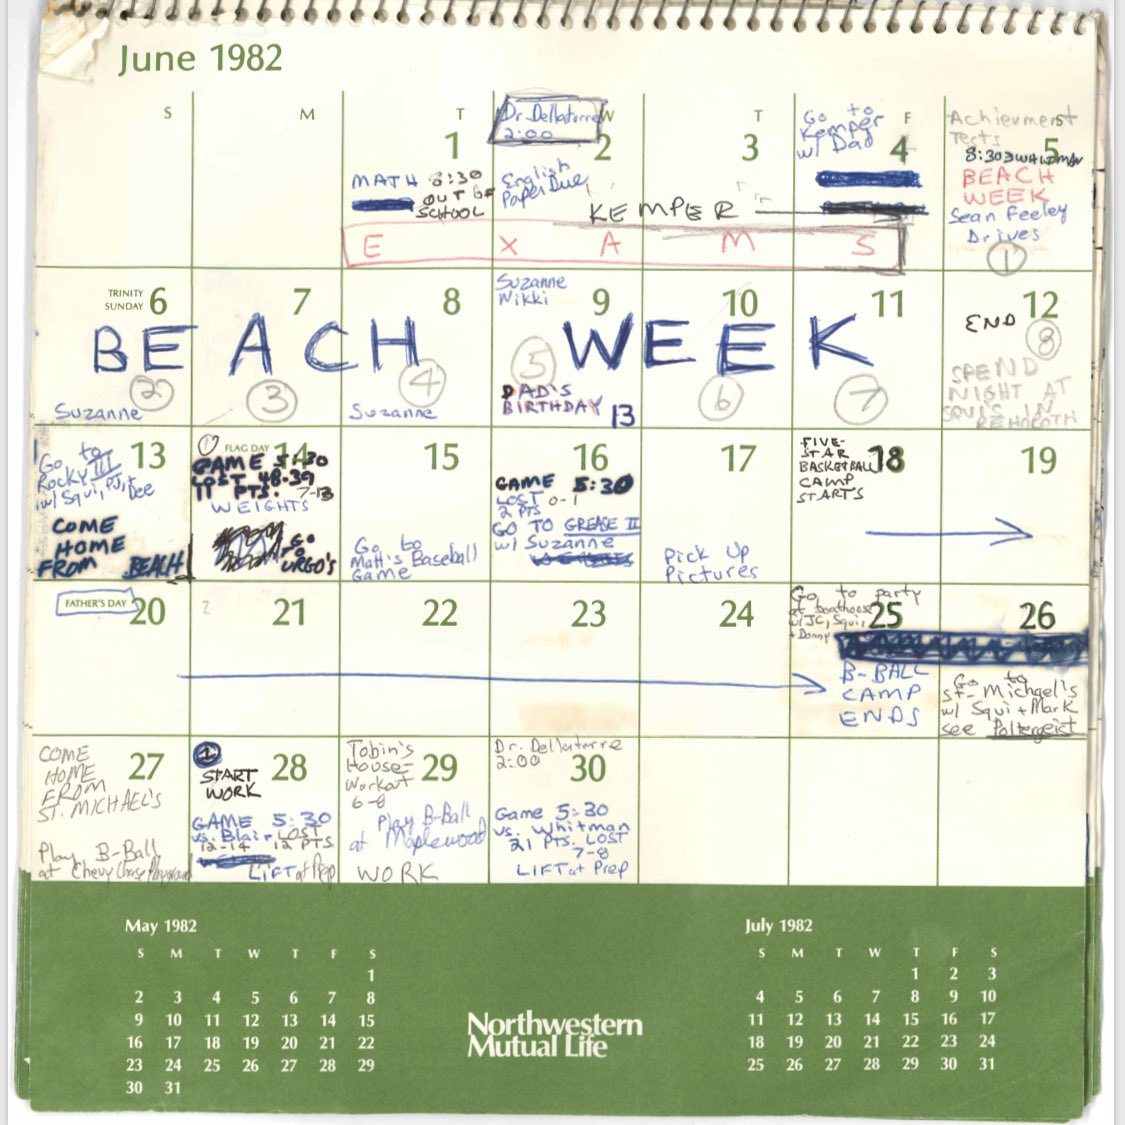 June 1982
S M T W T F S
1
MATH 8:30
OUT OF
SCHOOL
Dr. Dellatorre
2:00
2
English
Paper Due
3
KEMPER
Go to
Kemper
w/ Dad
4
E X A M S
Achievment
Tests
5
8:30 @ WHITMAN
BEACH
WEEK
Sean Feeley
Drives
1
TRINITY
SUNDAY 6
2
Suzanne
7
3
8
4
Suzanne
Suzanne
Nikki
9
5
DAD'S
BIRTHDAY 13
10
6
11
7
12
END
8
SPEND
NIGHT AT
SQUI'S IN
REHOBOTH
BEACH WEEK
13
Go to
Rocky III
w/ Squi, PJ,
Dee
COME
HOME
FROM BEACH
FLAG DAY 14
GAME 5:30
LOST 48-39
11 PTS. 7-13
WEIGHTS
GO
TO
URGO'S
15
Go to
Matt's Baseball
Game
16
GAME 5:30
LOST 0-1
2 PTS
GO TO GREASE II
w/ Suzanne
17
Pick Up
Pictures
18
FIVE-
STAR
BASKETBALL
CAMP
START'S
19
FATHER'S DAY 20
2
21
22
23
24
Go to party
at boathouse
w/ JC, Squi,
+ Donny
25
B-BALL
CAMP
ENDS
26
Go to
St. Michael's
w/ Squi + Mark
see Poltergeist
COME
HOME 27
FROM
ST. MICHAEL'S
Play B-Ball
at Chevy Chase Playground
28
START
WORK
GAME 5:30
vs. Blair LOST
12-14 12 PTS.
LIFT at Prep
Tobin's
House-
Workout
6-8
29
Play B-Ball
at Maplewood
WORK
Dr. Dellatorre
2:00
30
Game 5:30
vs. Whitman
21 PTS. LOST
7-8
LIFT at Prep
May 1982
S M T W T F S
1
2 3 4 5 6 7 8
9 10 11 12 13 14 15
16 17 18 19 20 21 22
23 24 25 26 27 28 29
30 31
Northwestern
Mutual Life
July 1982
S M T W T F S
1 2 3
4 5 6 7 8 9 10
11 12 13 14 15 16 17
18 19 20 21 22 23 24
25 26 27 28 29 30 31